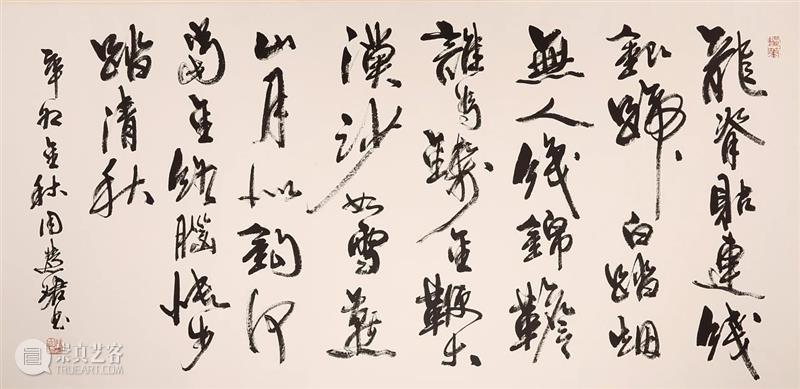 龍脊貼連錢
銀蹄白踏烟
無人織錦韂
誰為鑄金鞭大
漠沙如雪燕
山月似鉤何
當金絡腦快步
踏清秋
辛卯金秋周慧珺书
崇真艺客
TRUEART.COM